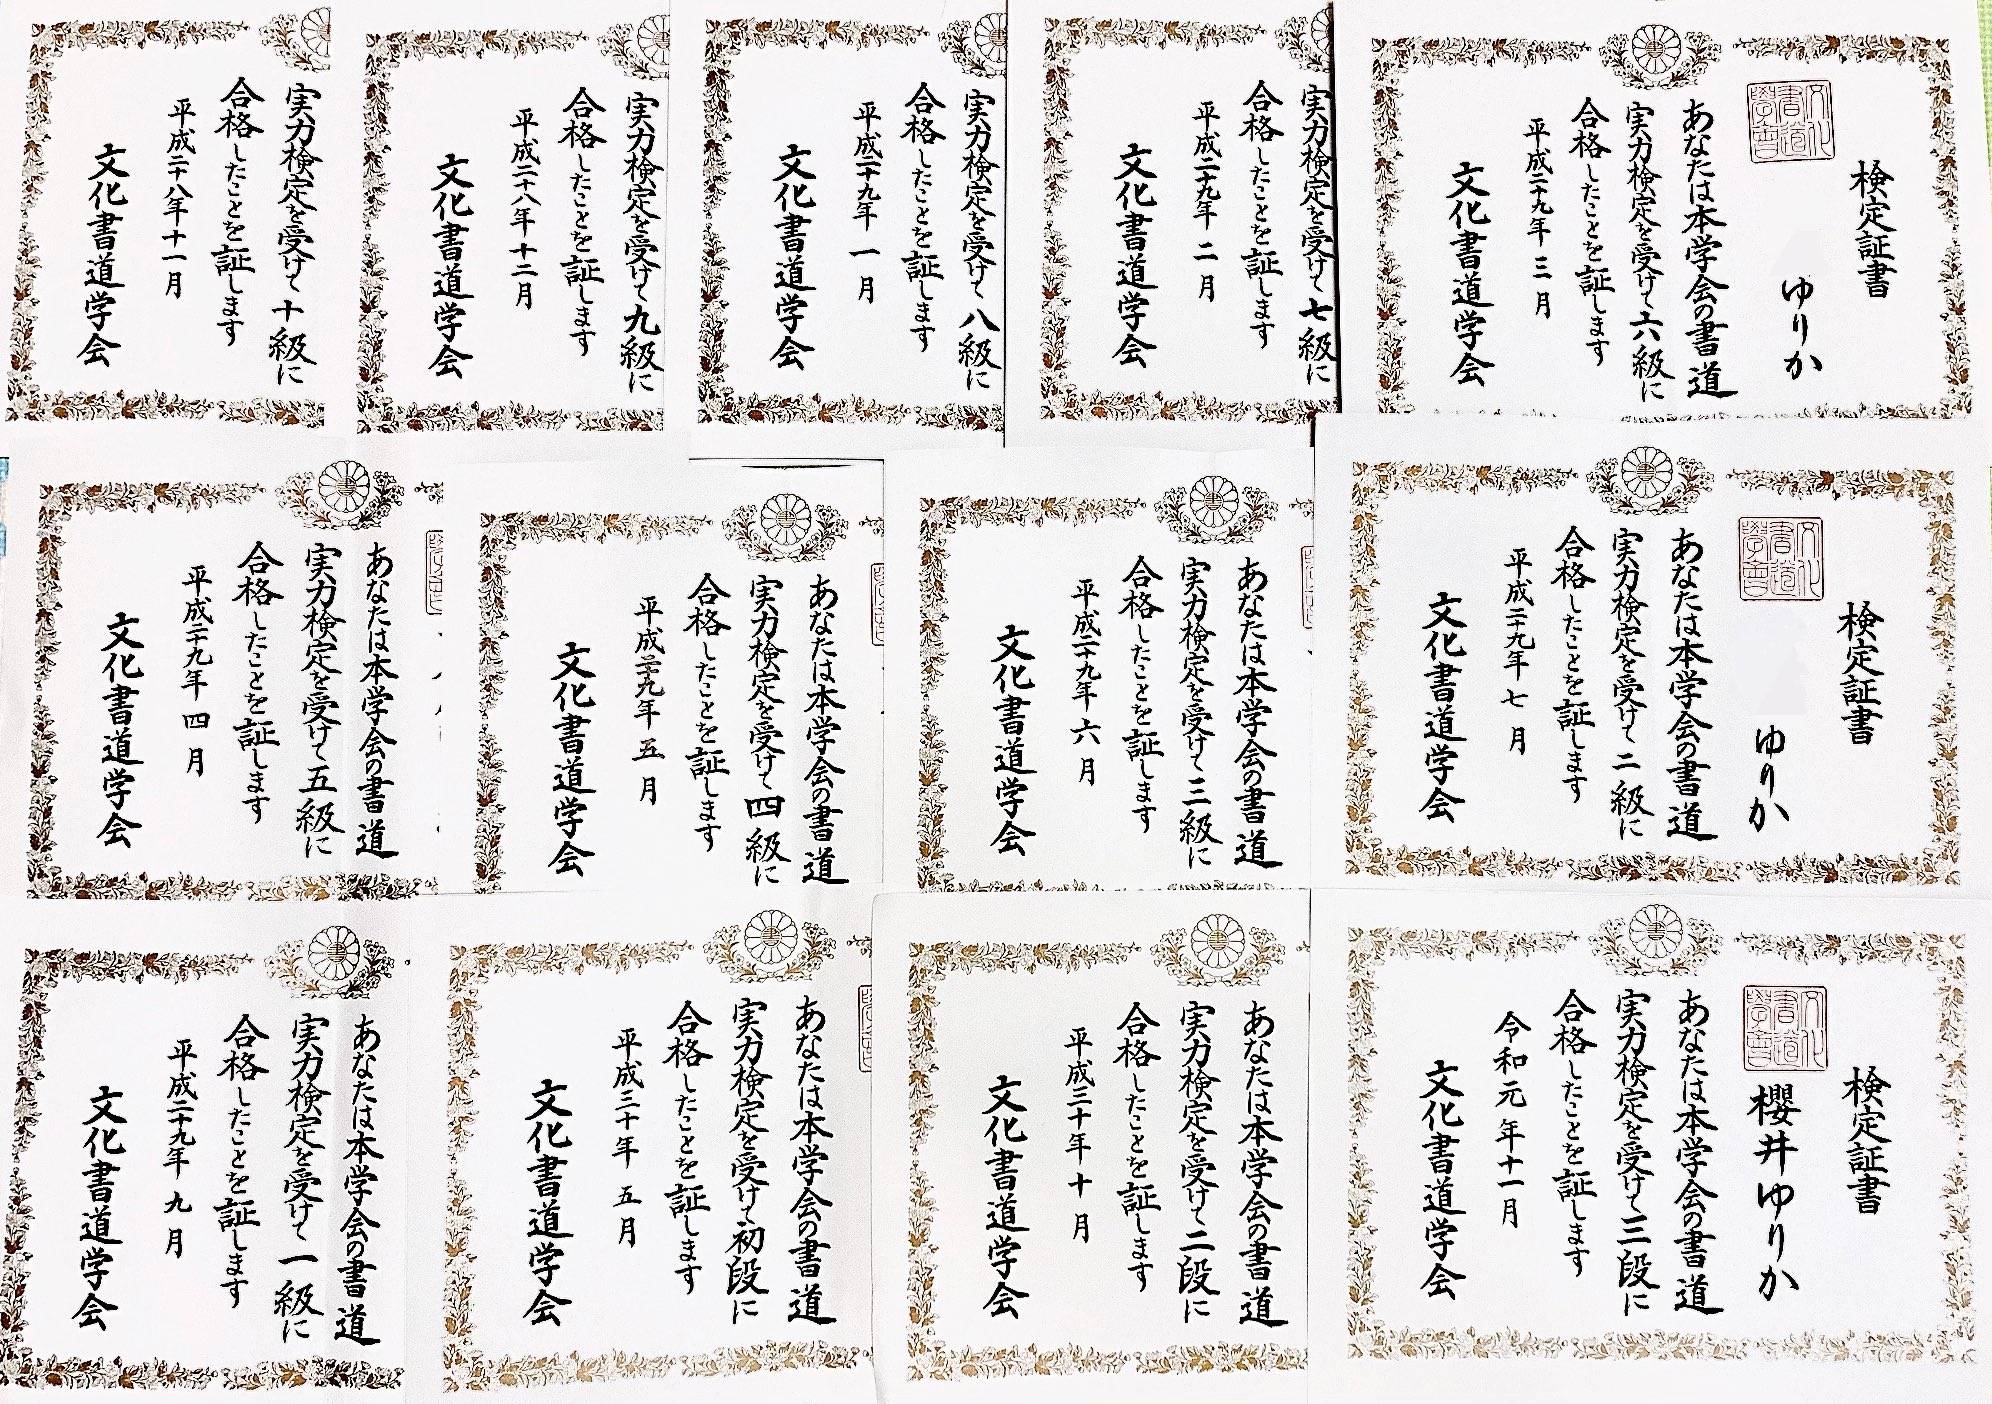 実力検定を受けて十級に
合格したことを証します
平成二十八年十一月
文化書道学会
実力検定を受けて九級に
合格したことを証します
平成二十八年十二月
文化書道学会
実力検定を受けて八級に
合格したことを証します
平成二十九年一月
文化書道学会
実力検定を受けて七級に
合格したことを証します
平成二十九年二月
文化書道学会
検定証書
文化書道學會
ゆりか
あなたは本学会の書道
実力検定を受けて六級に
合格したことを証します
平成二十九年三月
文化書道学会
あなたは本学会の書道
実力検定を受けて五級に
合格したことを証します
平成二十九年四月
文化書道学会
あなたは本学会の書道
実力検定を受けて四級に
合格したことを証します
平成二十九年五月
文化書道学会
あなたは本学会の書道
実力検定を受けて三級に
合格したことを証します
平成二十九年六月
文化書道学会
検定証書
文化書道學會
ゆりか
あなたは本学会の書道
実力検定を受けて二級に
合格したことを証します
平成二十九年七月
文化書道学会
あなたは本学会の書道
実力検定を受けて一級に
合格したことを証します
平成二十九年九月
文化書道学会
あなたは本学会の書道
実力検定を受けて初段に
合格したことを証します
平成三十年五月
文化書道学会
あなたは本学会の書道
実力検定を受けて二段に
合格したことを証します
平成三十年十月
文化書道学会
検定証書
文化書道學會
櫻井ゆりか
あなたは本学会の書道
実力検定を受けて三段に
合格したことを証します
令和元年十一月
文化書道学会